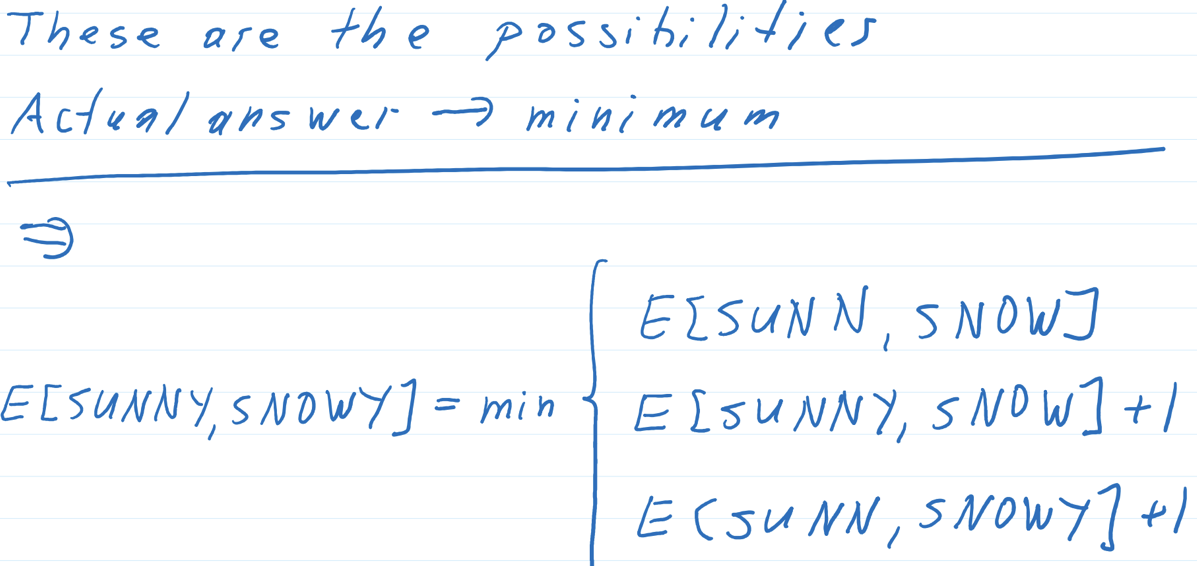 These are the possibilities
Actual answer → minimum
⇒
E[SUNN, SNOW]
E[SUNNY, SNOWY] = min { E[SUNNY, SNOW] +1
E(SUNN, SNOWY] +1